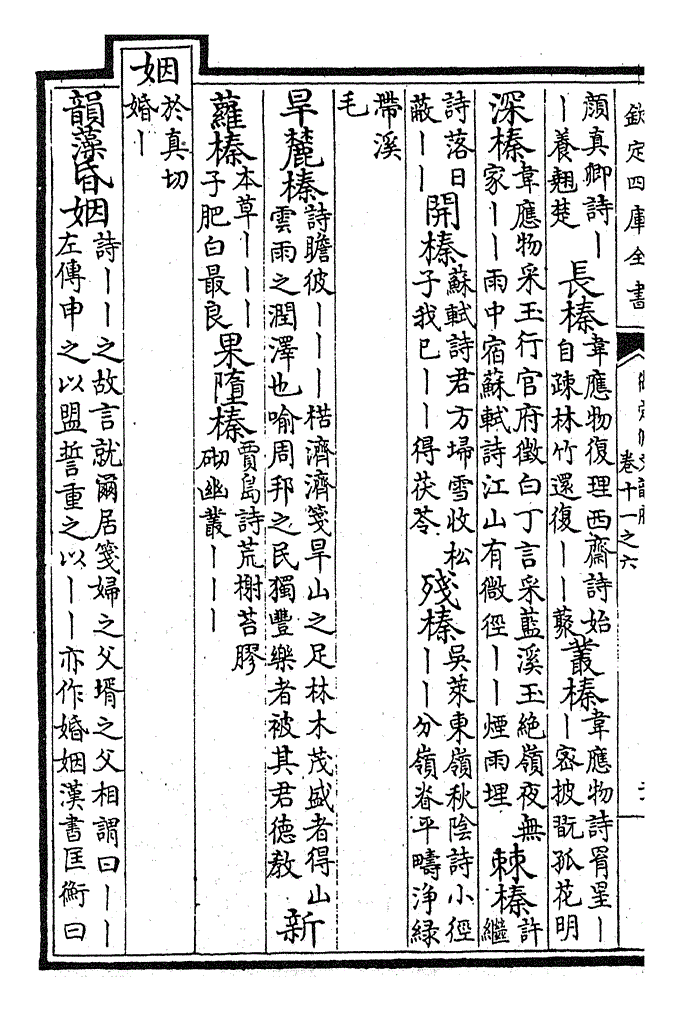 欽定四庫全書
卷十一之六
顔真卿詩丨丨養翹楚 長榛 韋應物復理西齋詩始自疎林竹還復丨丨藂 叢榛 韋應物詩罥星丨丨密披翫孤花明
深榛 韋應物采玉行官府徵白丁言采藍溪玉絶嶺夜無家丨丨雨中宿蘇軾詩江山有微徑丨丨煙雨埋 棘榛 許繼
詩落日蔽丨丨 開榛 蘇軾詩君方埽雪收松子我已丨丨得茯苓 殘榛 吳萊東嶺秋陰詩小徑丨丨分嶺眷平疇浄緑
帶溪毛
旱麓榛 詩瞻彼丨丨丨楛濟濟箋旱山之足林木茂盛者得山雲雨之潤澤也喻周邦之民獨豐樂者被其君德敎 新
蘿榛 本草丨丨丨子肥白最良 果墮榛 賈島詩荒榭苔膠砌幽叢丨丨丨
姻 於真切婚丨
韻藻昏姻 詩丨丨之故言就爾居箋婦之父壻之父相謂曰丨丨左傳申之以盟誓重之以丨丨亦作婚姻漢書匡衡曰